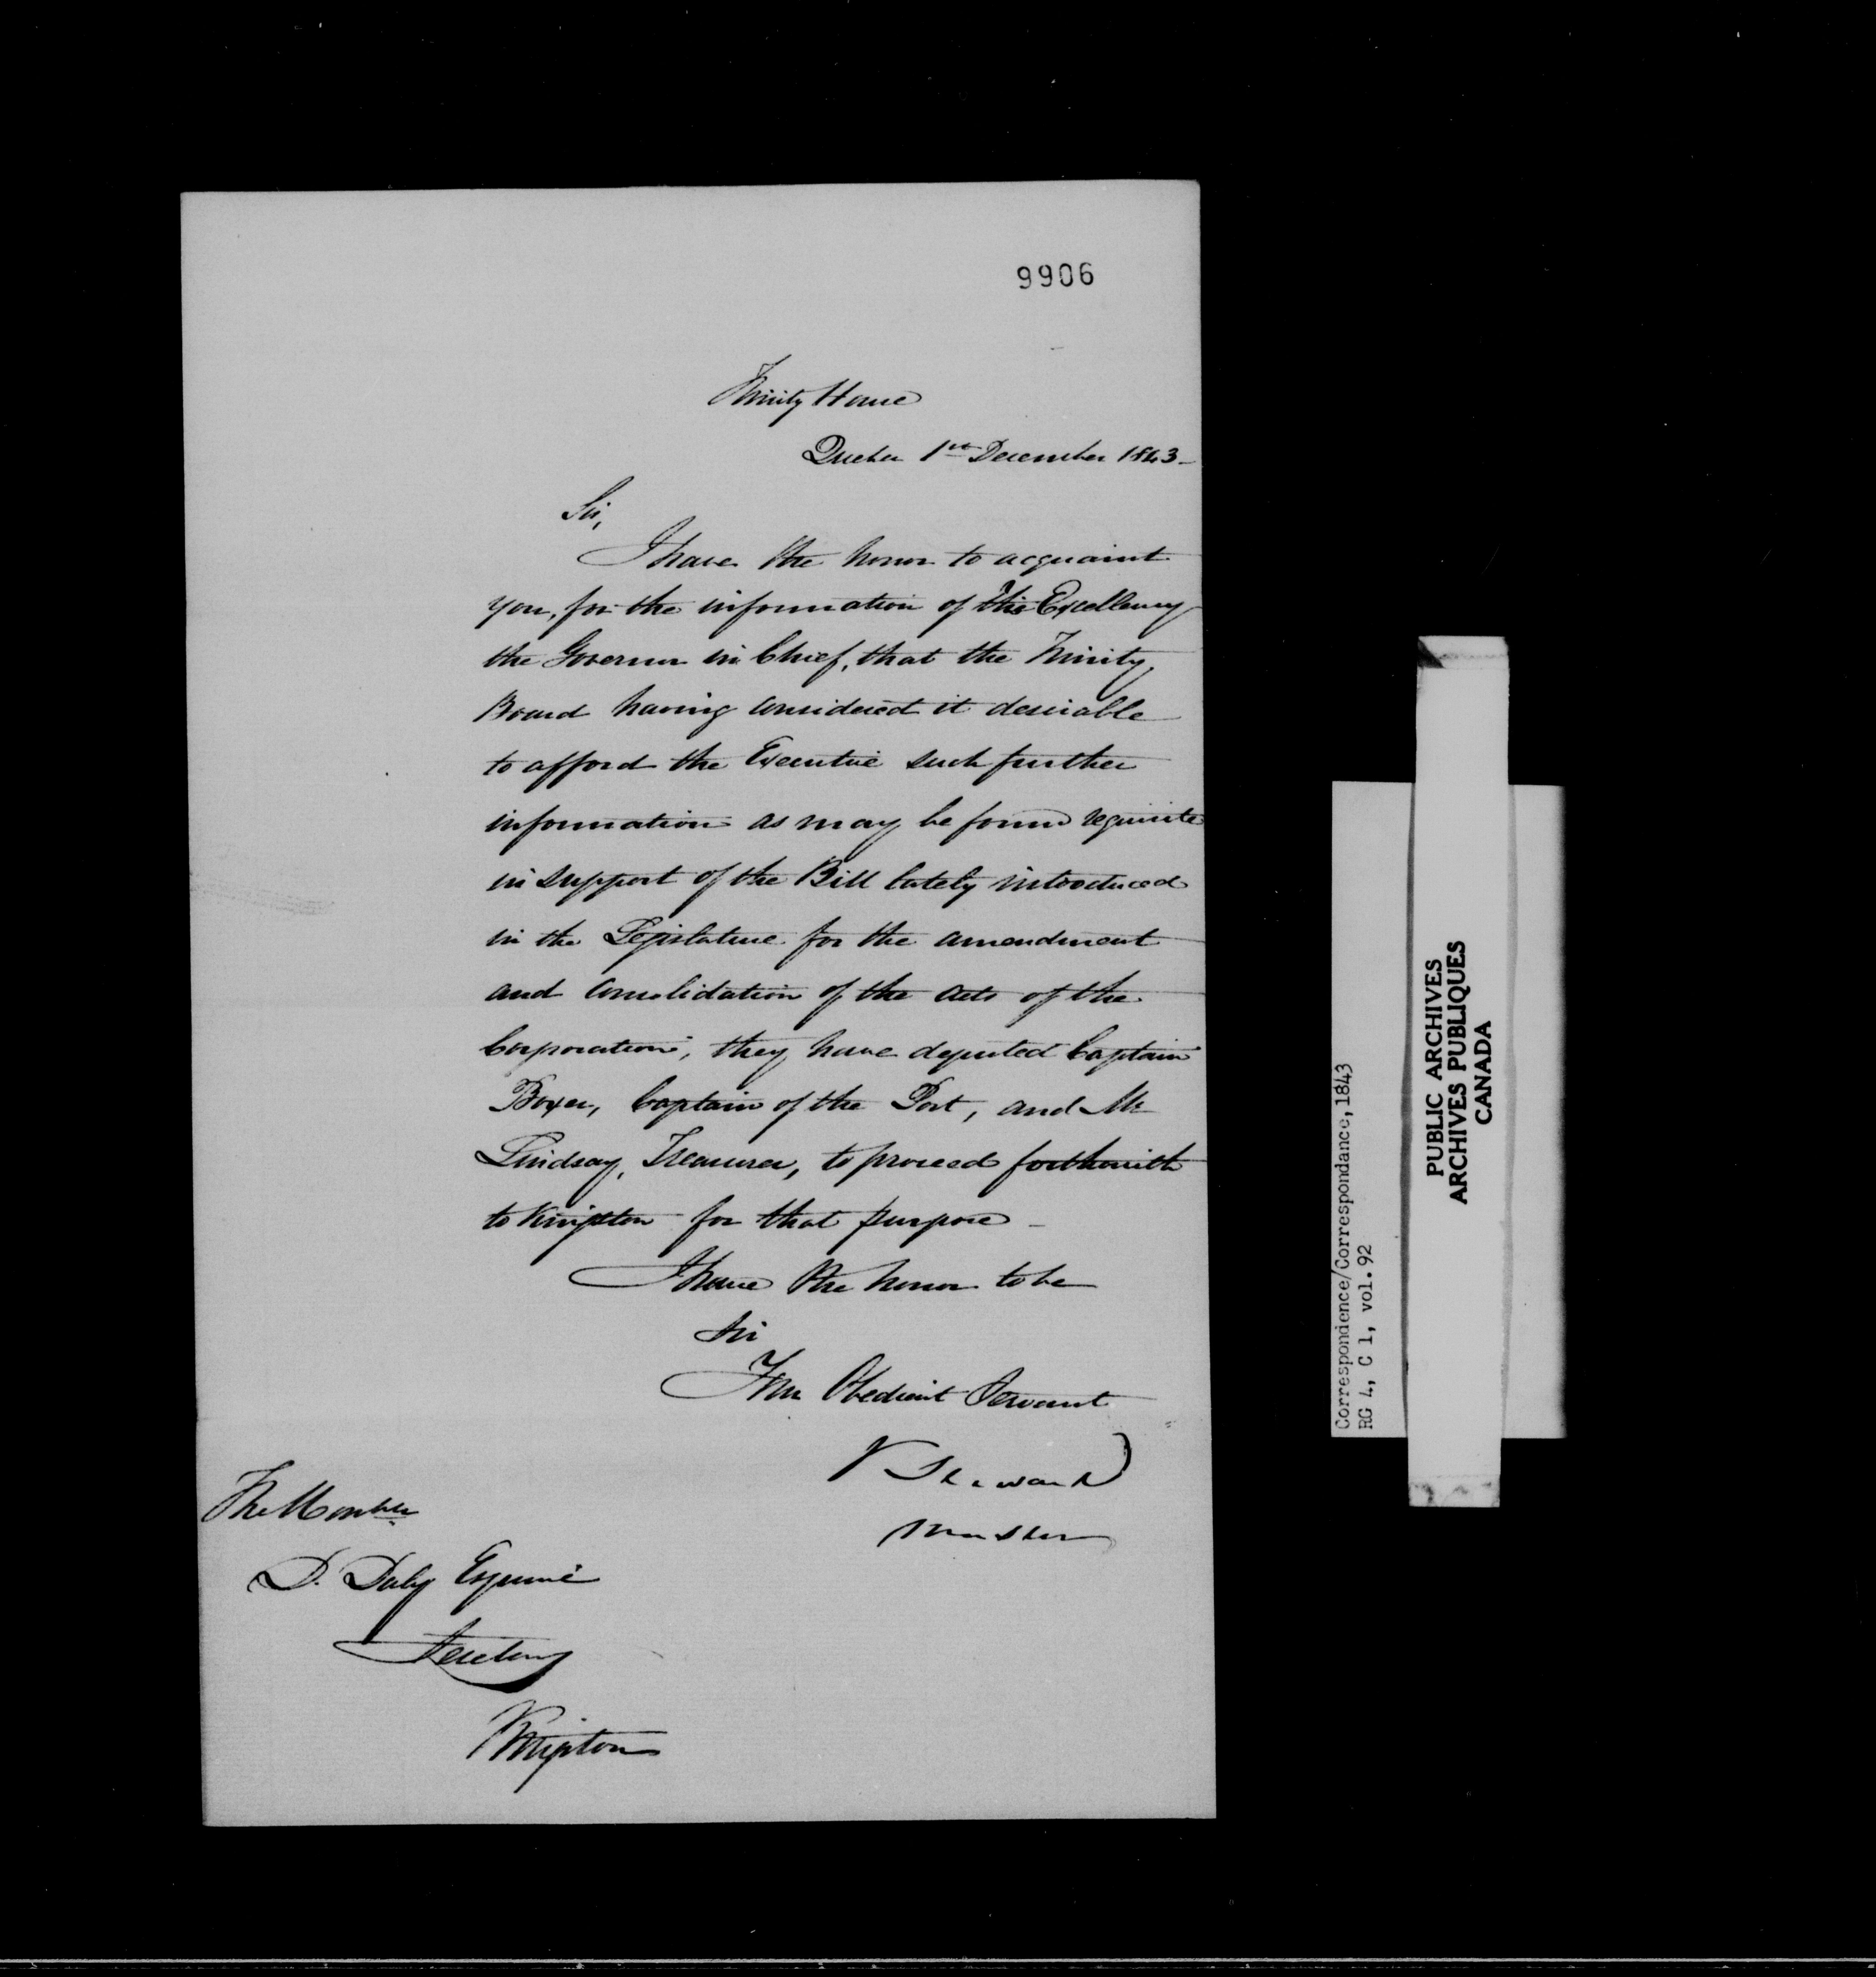 9906
Trinity House
Quebec 1st December 1843 -
Sir,
I have the honor to acquaint
you, for the information of His Excellency
the Governor in Chief, that the Trinity
Board having considered it desirable
to afford the Executive such further
information as may be found requisite
in support of the Bill lately introduced
in the Legislature for the amendment
and consolidation of the acts of the
Corporation, they have deputed Captain
Boxer, Captain of the Port, and Mr
Lindsay, Treasurer, to proceed forthwith
to Kingston for that purpose -
I have the honor to be
Sir
Your Obedient Servant
Steward
Master
The Honble
D. Daly Esquire
Secretary
Kingston
Correspondence/Correspondance, 1843
RG 4, C 1, vol. 92
PUBLIC ARCHIVES
ARCHIVES PUBLIQUES
CANADA